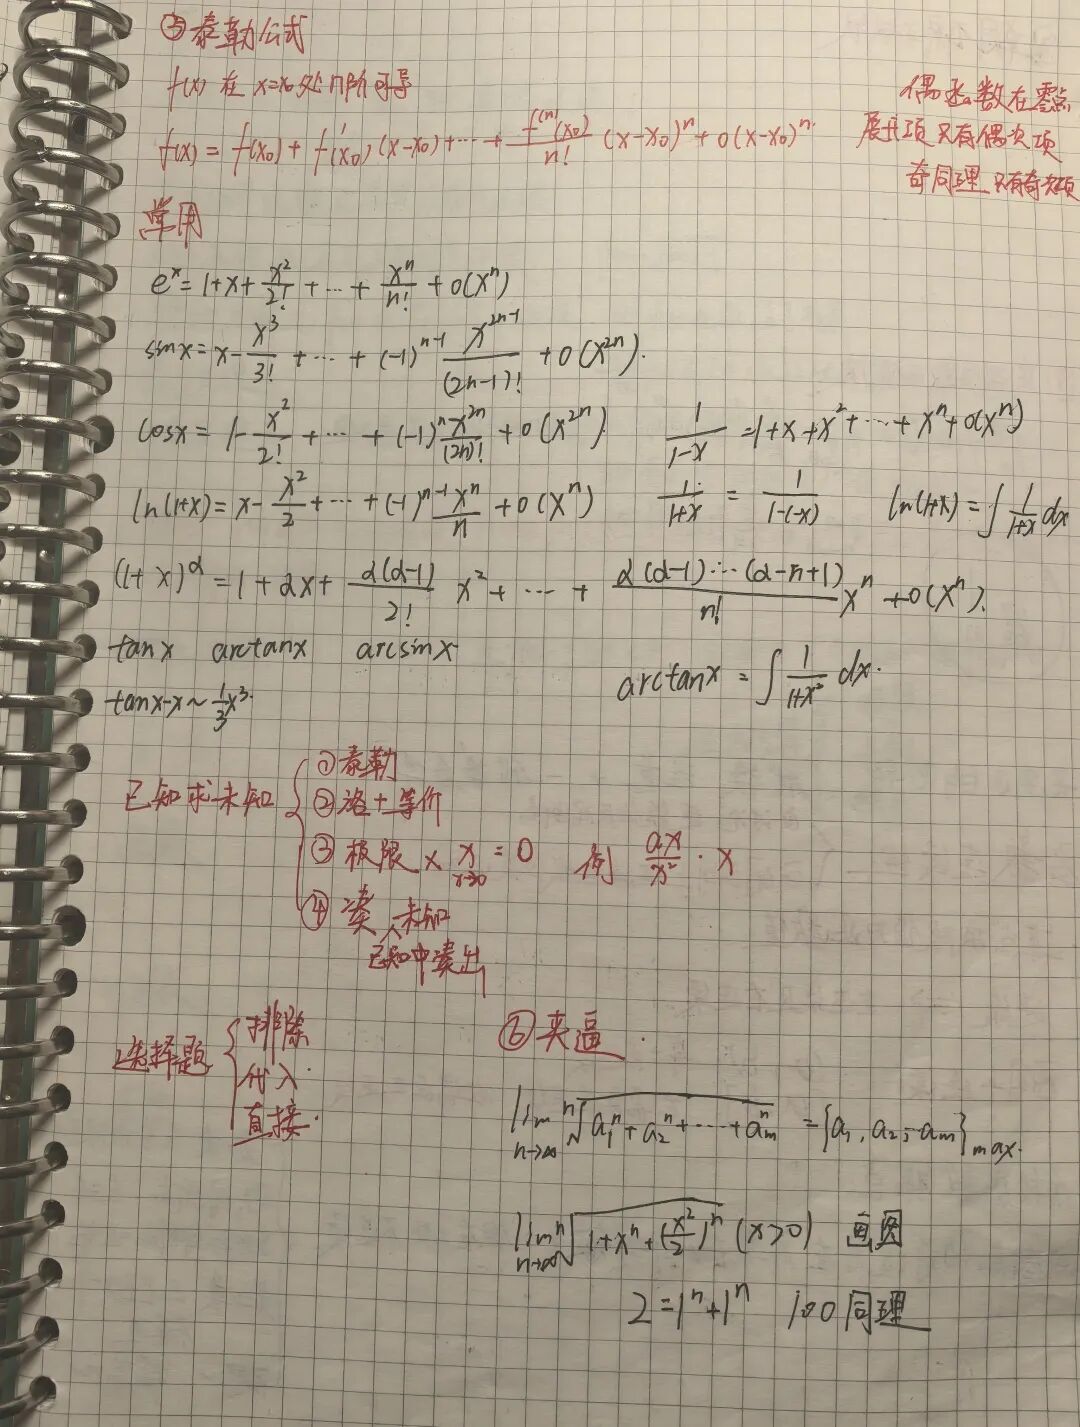 ⑤泰勒公式
f(x) 在 x=x₀处n阶可导
f(x) = f(x₀) + f'(x₀)(x-x₀) + ⋯ + f⁽ⁿ⁾(x₀)/n! (x-x₀)ⁿ + o(x-x₀)ⁿ.
偶函数在零点
展开项只有偶次项
奇同理 只有奇次项
常用
eˣ = 1+x+x²/2! + ⋯ + xⁿ/n! + o(xⁿ)
sinx = x - x³/3! + ⋯ + (-1)ⁿ⁻¹ x²ⁿ⁻¹/(2n-1)! + o(x²ⁿ).
cosx = 1 - x²/2! + ⋯ + (-1)ⁿ x²ⁿ/(2n)! + o(x²ⁿ) 1/(1-x) = 1+x+x²+⋯+xⁿ+o(xⁿ)
ln(1+x) = x - x²/2 + ⋯ + (-1)ⁿ⁻¹ xⁿ/n + o(xⁿ) 1/(1+x) = 1/(1-(-x)) ln(1+x) = ∫ 1/(1+x) dx
(1+x)^α = 1 + αx + α(α-1)/2! x² + ⋯ + α(α-1)⋯(α-n+1)/n! xⁿ + o(xⁿ).
tanx arctanx arcsinx
arctanx = ∫ 1/(1+x²) dx.
tanx-x ~ 1/3 x³.
已知求未知
①泰勒
②洛+等价
③极限 × x = 0 例 ax/x² · x
x→0
④凑 未知
已知中凑出
选择题
排除
代入
直接.
⑥夹逼.
lim n→∞ ⁿ√(a₁ⁿ+a₂ⁿ+⋯+aₘⁿ) = {a₁, a₂, ⋯aₘ}max.
lim n→∞ ⁿ√(1+xⁿ+(x²/2)ⁿ) (x>0) 画图
2=1ⁿ+1ⁿ 100同理